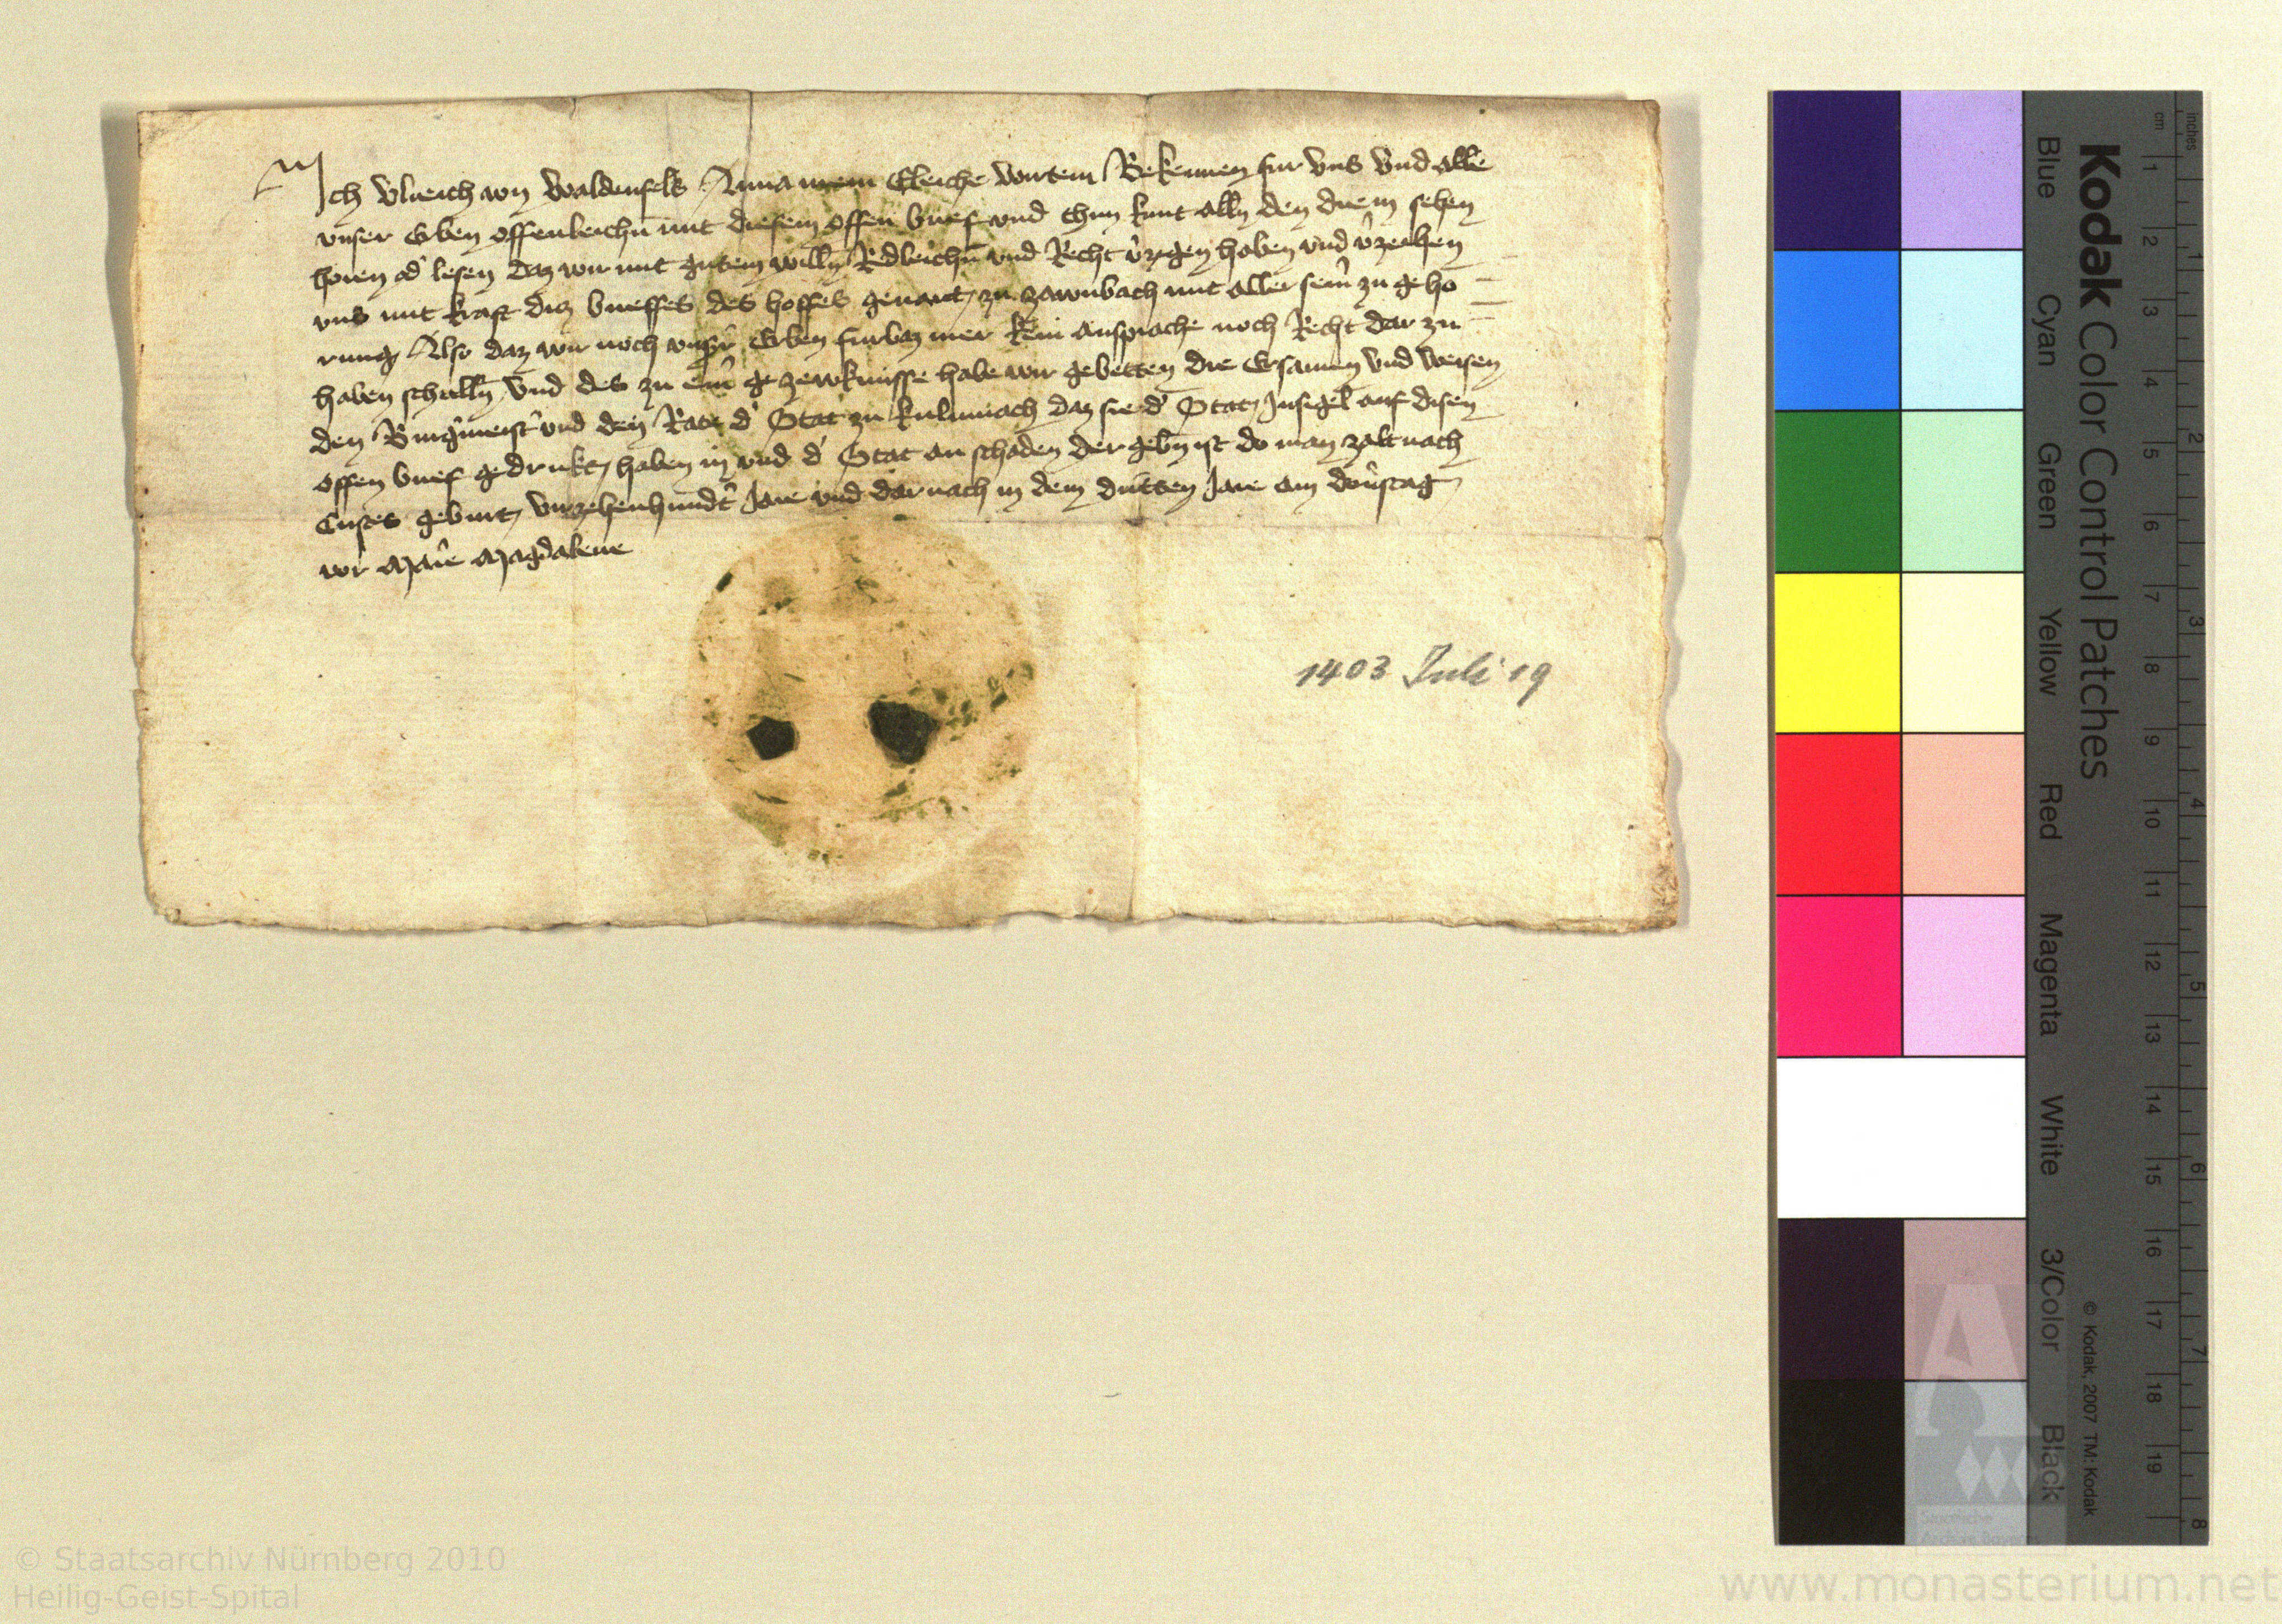 Ich Vlreich von Waldenfels Anna mein Eleiche wirtein Bekennen fur vns vnd alle
vnser Erben offenleichn mit diesem offen brief vnd thun kunt alln den die in sehen
horen od' lesen daz wir mit gutem willn Redleichn vnd Recht v'zigen haben vnd v'zeihen
vns mit kraft diz brieffes des hoffes genant zu zawnbach mit aller sein' zu geho
rung Also daz wir noch vnser Erben furbaz mer kein ansprache noch Recht dar zu
haben schulln Vnd des zu eim gezewknisse habe wir gebetten die Ersamen vnd weisen
den Burg'meist' vnd den Rate d' Stat zu kulmnach daz sie d' Stat Insigel auf disen
offen brief gedrukt haben in vnd d' Stat an schaden der gebn ist do man zalt nach
Cristes geburt virzehenhundt' Jare vnd dar nach in dem dritten Jare am don'stag
vor Marie Magdalene
1403 Juli 19
Kodak Color Control Patches
Blue Cyan Green Yellow Red Magenta White 3/Color Black
© Kodak, 2007 TM: Kodak
cm 1 2 3 4 5 6 7 8 9 10 11 12 13 14 15 16 17 18 19
inches 1 2 3 4 5 6 7 8
Staatliche
© Staatsarchiv Nürnberg 2010
Heilig-Geist-Spital
www.monasterium.net